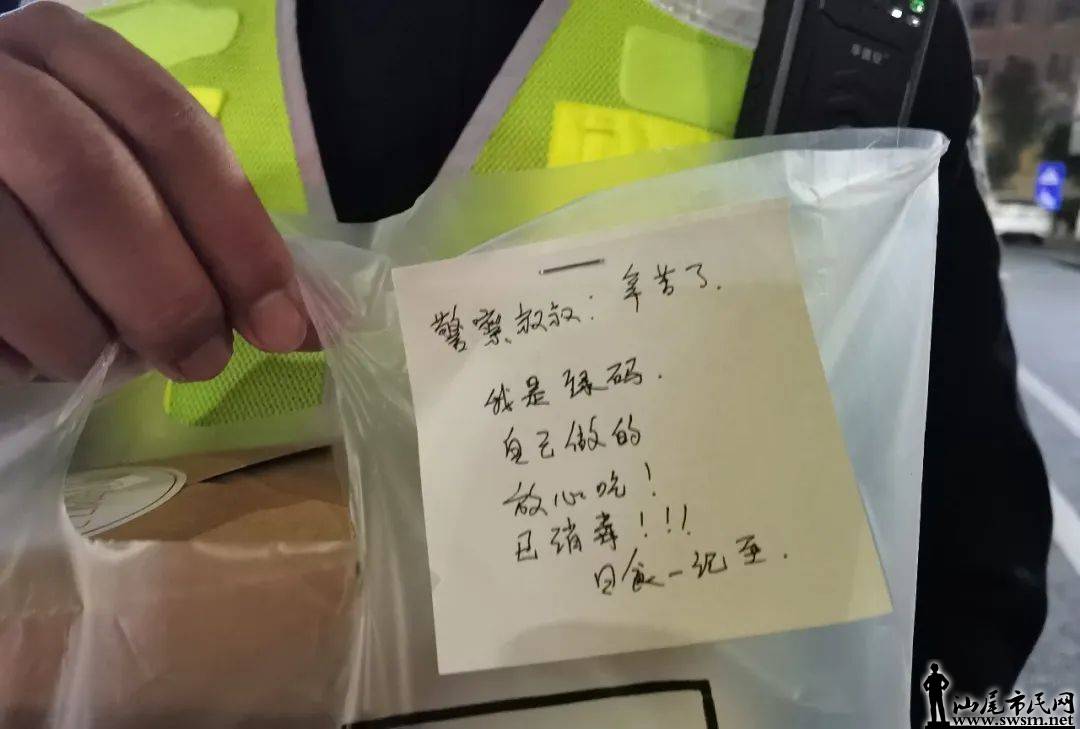 警察叔叔：辛苦了.
我是绿码.
自己做的
放心吃！
已消毒！！！
日食一记至.
汕尾市民网
www.swsm.net